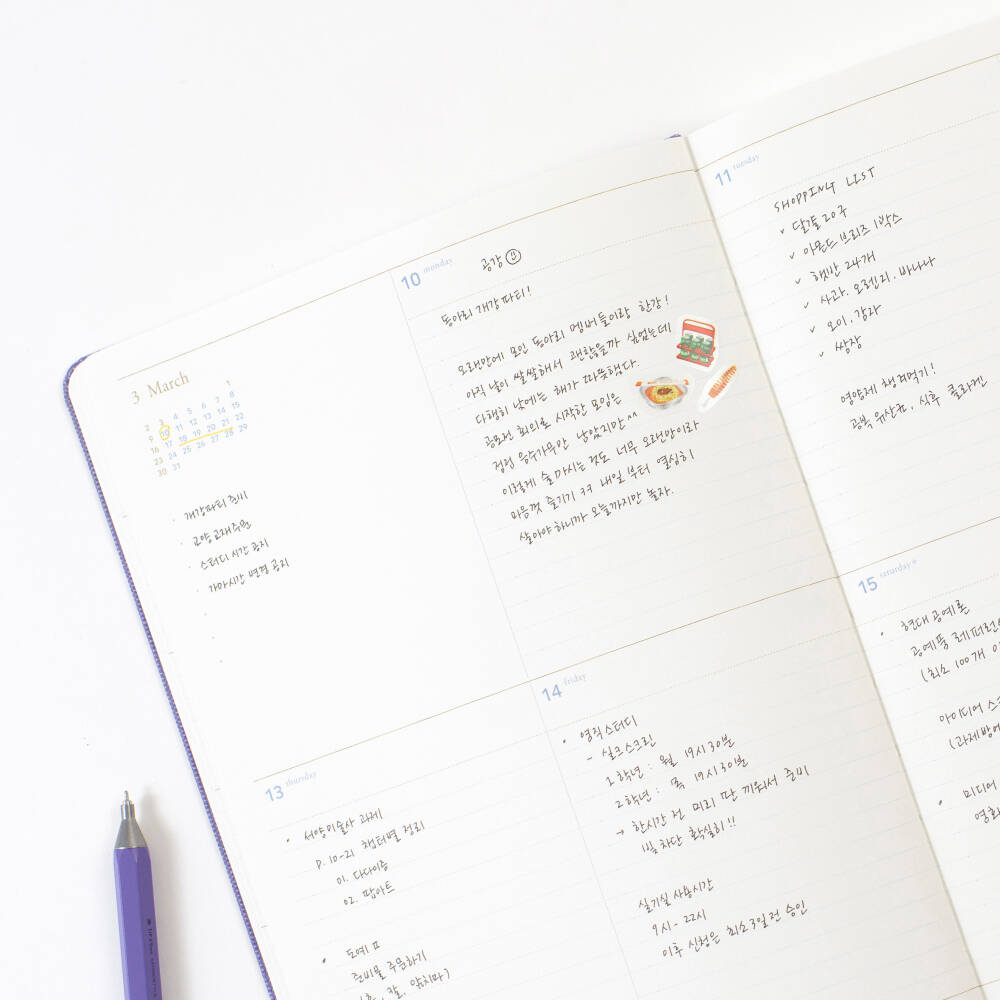 3 March
1
2 3 4 5 6 7 8
9 10 11 12 13 14 15
16 17 18 19 20 21 22
23 24 25 26 27 28 29
30 31
· 개강파티 준비
· 교양교재주문
· 스터디 시간 공지
· 가마시간 변경 공지
10 monday
공강
동아리 개강파티!
오랜만에 모인 동아리 멤버들이랑 한강!
아직 날이 쌀쌀해서 괜찮을까 싶었는데
다행히 낮에는 해가 따뜻했다.
공모전 회의로 시작한 모임은
점점 음주가무만 남았지만^^
이렇게 술 마시는 것도 너무 오랜만이라
마음껏 즐기기 ㅋㅋ 내일 부터 열심히
살아야 하니까 오늘까지만 놀자.
11 tuesday
SHOPPING LIST
✓ 달걀 20구
✓ 아몬드 브리즈 1박스
✓ 햇반 24개
✓ 사과. 오렌지. 바나나
✓ 오이. 감자
✓ 쌈장
영양제 챙겨먹기!
공복 유산균, 식후 콜라겐
13 thursday
• 서양미술사 과제
P. 10-21 챕터별 정리
01. 다다이즘
02. 팝아트
• 도예 II
준비물 주문하기
칼, 앞치마)
14 friday
• 염직스터디
- 실크스크린
2학년 : 월 19시 30분
2학년 : 목 19시 30분
→ 한시간 전 미리 판 끼워서 준비
빛 차단 확실히!!
실기실 사용시간
9시 - 22시
이후 신청은 최소 3일 전 승인
15 saturday
• 현대공예론
공예품 레퍼런스
(최소 100개
아이디어
(과제방에
• 미디어